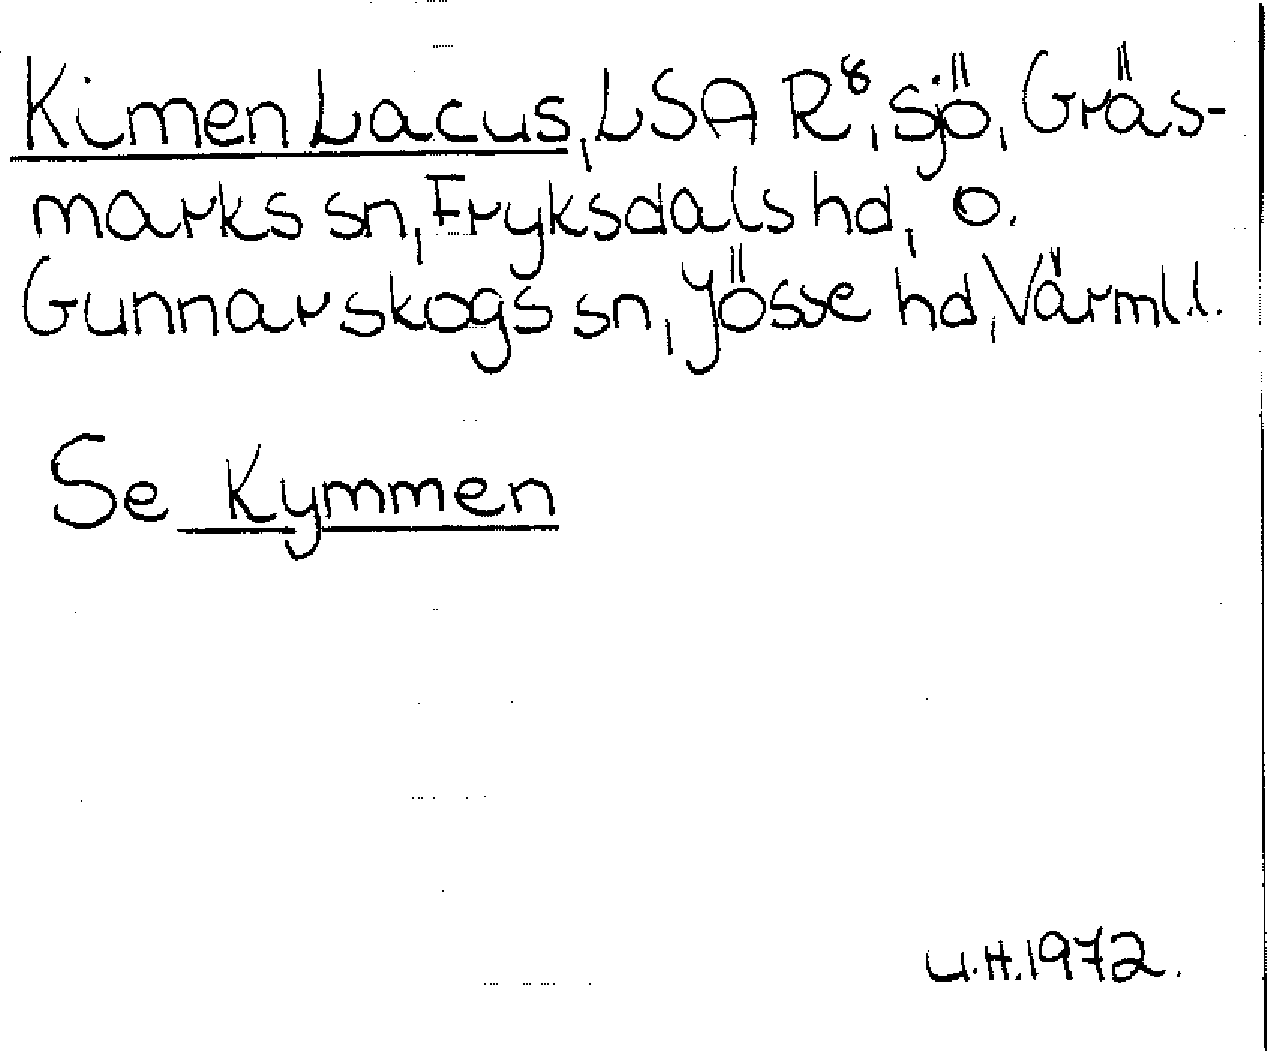 Kimen Lacus, LSA R⁸, sjö, Gräs-
marks sn, Fryksdals hd, o.
Gunnarskogs sn, Jösse hd, Värml.l.
Se Kymmen
U.H.1972.